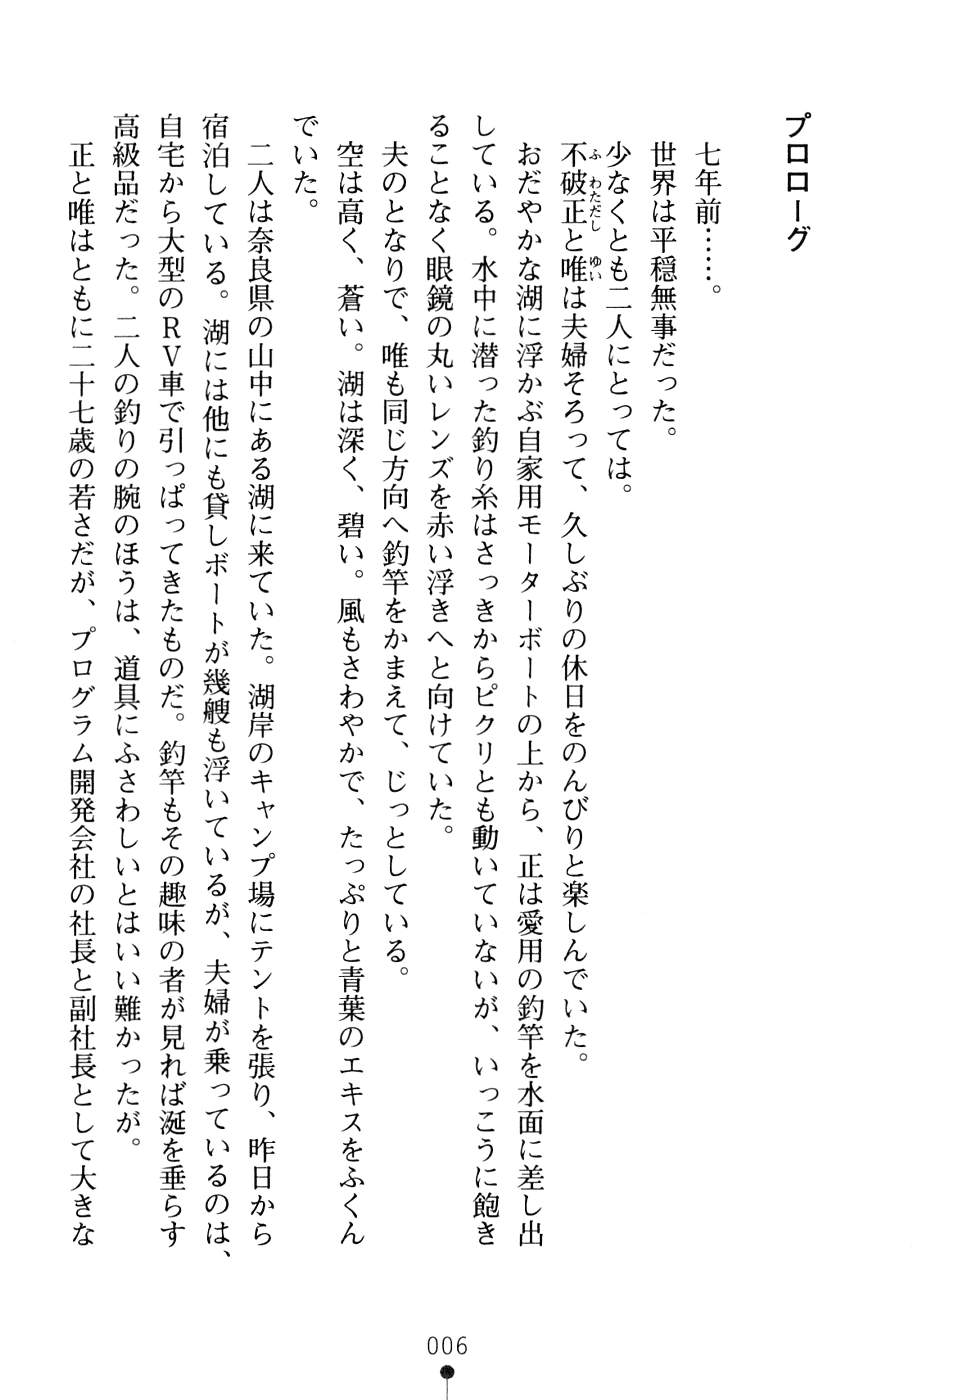 プロローグ
七年前……。
世界は平穏無事だった。
少なくとも二人にとっては。
不破正と唯は夫婦そろって、久しぶりの休日をのんびりと楽しんでいた。
ふ わただし ゆい
おだやかな湖に浮かぶ自家用モーターボートの上から、正は愛用の釣竿を水面に差し出
している。水中に潜った釣り糸はさっきからピクリとも動いていないが、いっこうに飽き
ることなく眼鏡の丸いレンズを赤い浮きへと向けていた。
夫のとなりで、唯も同じ方向へ釣竿をかまえて、じっとしている。
空は高く、蒼い。湖は深く、碧い。風もさわやかで、たっぷりと青葉のエキスをふくん
でいた。
二人は奈良県の山中にある湖に来ていた。湖岸のキャンプ場にテントを張り、昨日から
宿泊している。湖には他にも貸しボートが幾艘も浮いているが、夫婦が乗っているのは、
自宅から大型のＲＶ車で引っぱってきたものだ。釣竿もその趣味の者が見れば涎を垂らす
高級品だった。二人の釣りの腕のほうは、道具にふさわしいとはいい難かったが。
正と唯はともに二十七歳の若さだが、プログラム開発会社の社長と副社長として大きな
006